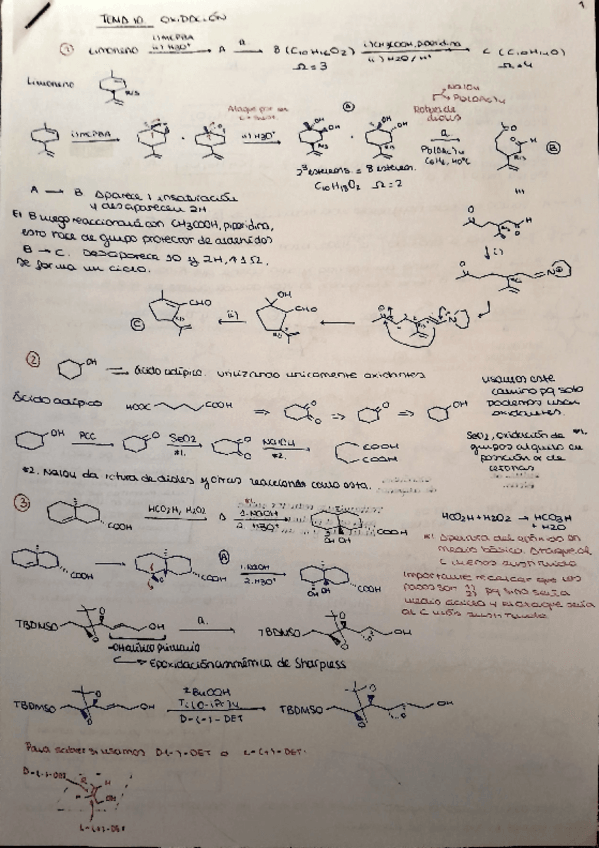 1
TEMA 10. OXIDACIÓN
① Limoneno i) MCPBA ii) H3O+ A a. B (C10H16O2) i) CH3COOH, piperidina ii) H2O / H+ C (C10H14O)
Ω=3 Ω=4
Limoneno
R/S
NaIO4
Pb(OAc)4
Ruptura de dioles
i) MCPBA ii) H3O+ a. Pb(OAc)4 C6H6, 40°C
A
B
2³ esterens = 8 esteren.
C10H18O2 Ω=2
A → B Aparece 1 insaturación
y desaparecen 2H
El B luego reaccionará con CH3COOH, piperidina,
esto hace de grupo protector de aldehídos
B → C. Desaparece 1O y 2H, +1Ω.
Se forma un ciclo.
i)
OH
CHO
ii)
CHO
C
② OH ⇒ ácido adípico. Utilizando unicamente oxidantes
usamos este
camino pq solo
podemos usar
oxidantes.
Ácido adípico HOOC COOH ⇒ ⇒ ⇒ OH
OH PCC SeO2 *1. NaIO4 *2. COOH
COOH
SeO2, oxidación de *1.
grupos alquilo en
posición α de
cetonas
*2. NaIO4 da rotura de dioles y otras reacciones como esta.
③ COOH HCO2H, H2O2 A 1. NaOH 2. H3O+ COOH
OH OH
HCO2H + H2O2 → HCO3H
+ H2O
*1 Apertura del epóxido en
medio básico. Ataque al
C menos sustituido
Importante recalcar que los
pasos son 1) 2) pq sino sería
medio ácido y el ataque sería
al C más sustituido
COOH A COOH 1. NaOH 2. H3O+ COOH
OH OH
TBDMSO OH a. TBDMSO OH
-OH alílico primario
Epoxidación asimétrica de Sharpless
TBDMSO OH tBuOOH Ti(O-iPr)4 D-(-)-DET TBDMSO OH
Para saber si usamos D-(-)-DET o L-(+)-DET.
D-(-)-DET
OH
L-(+)-DET